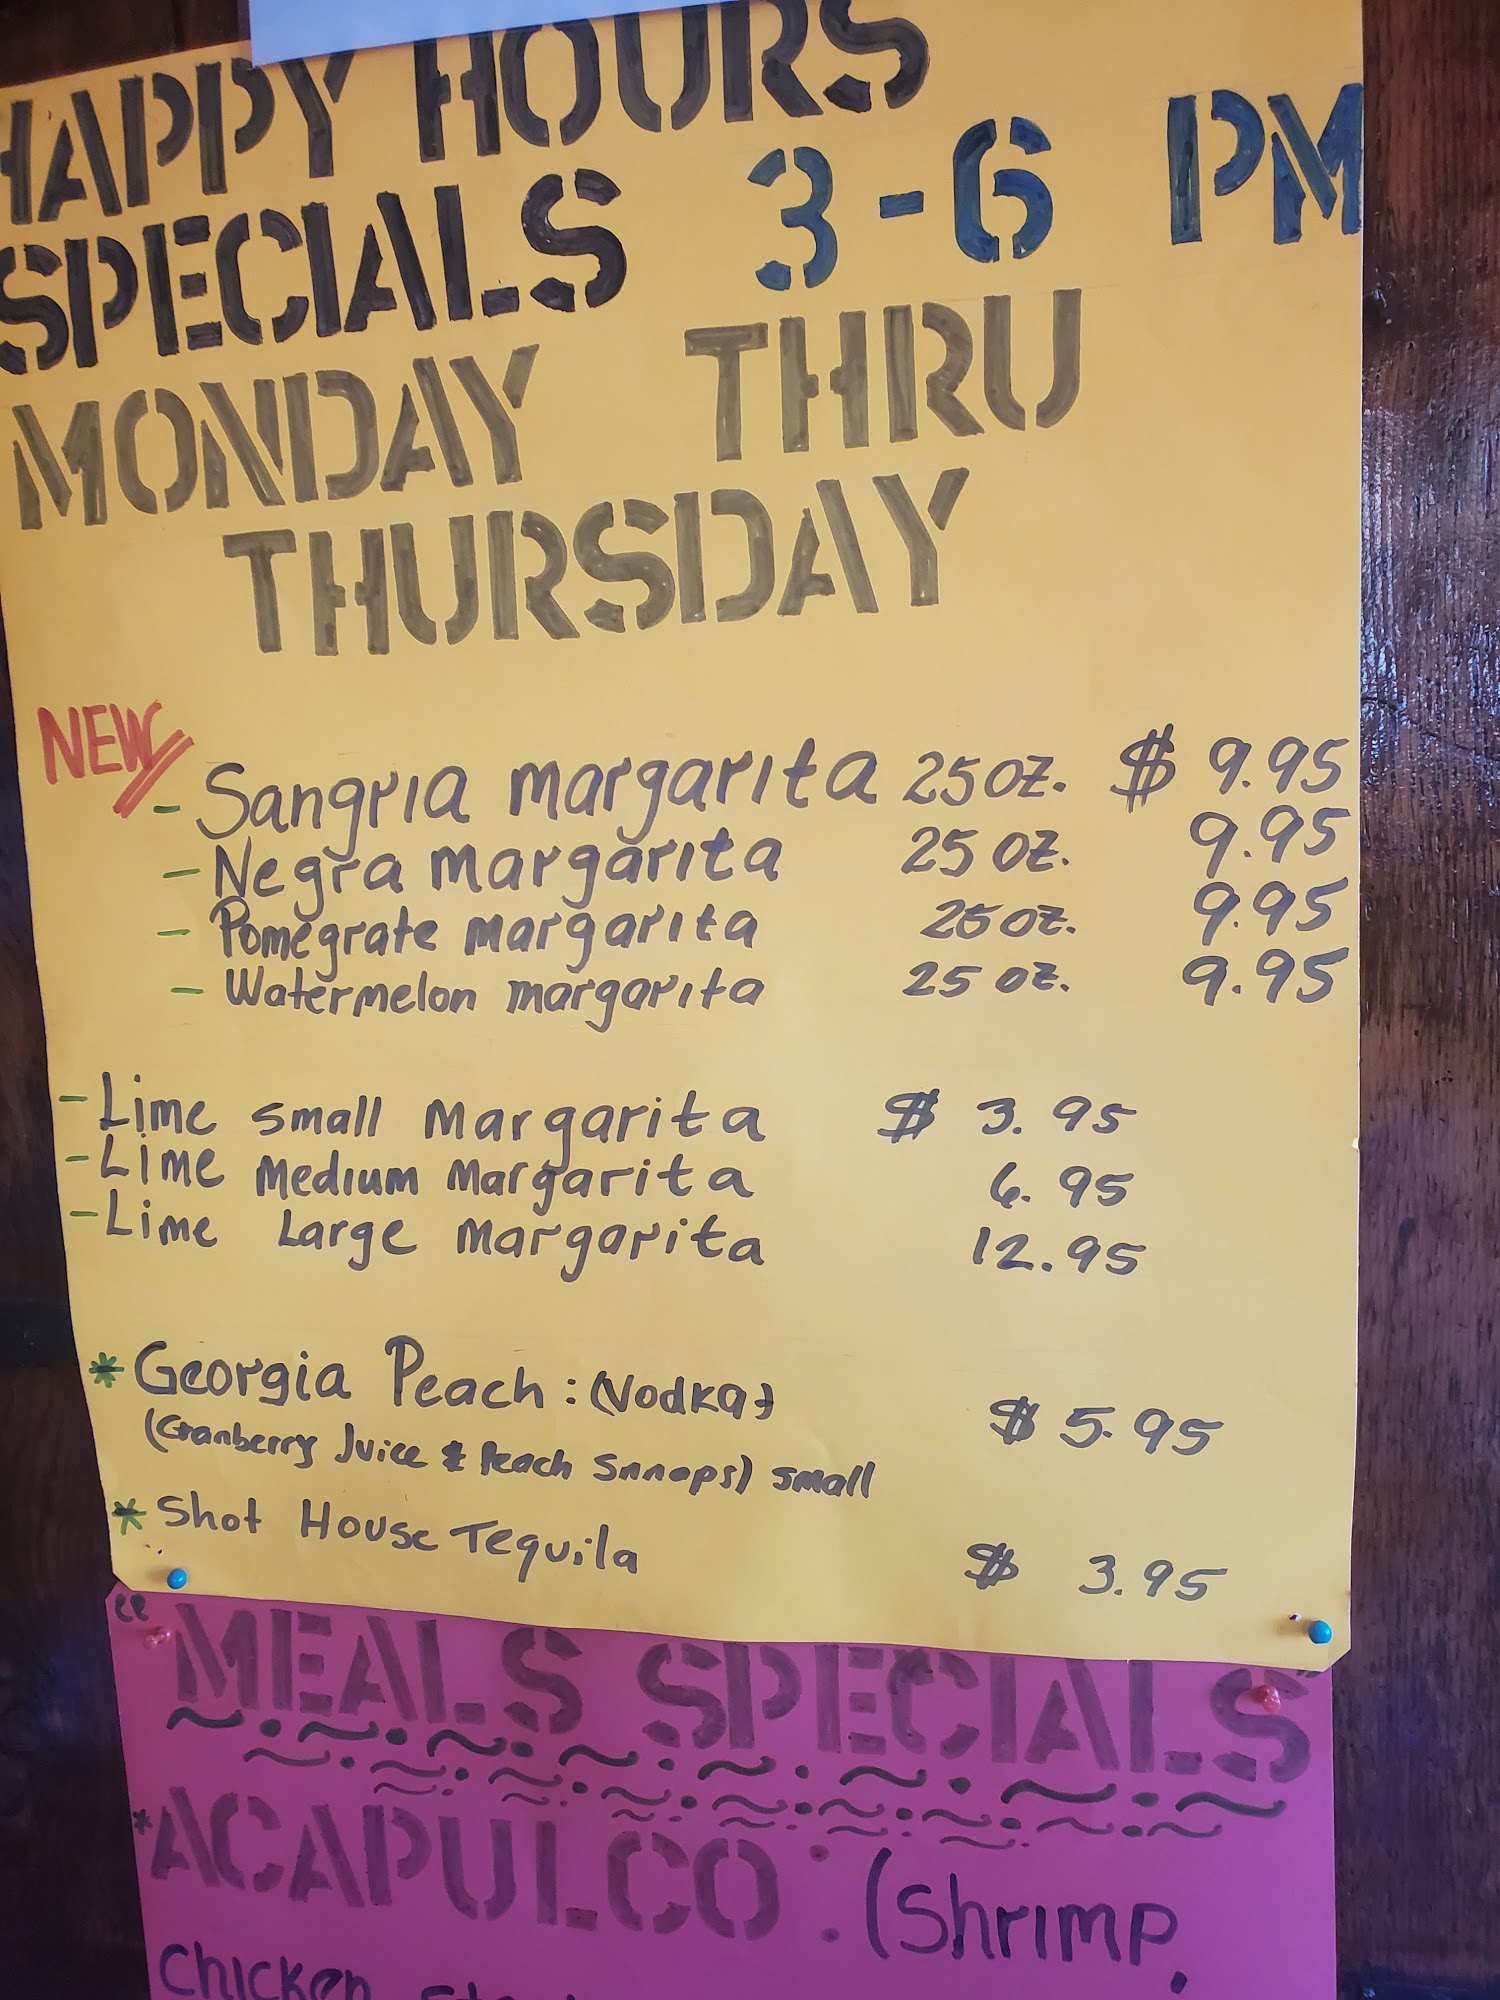 HAPPY HOURS
SPECIALS 3-6 PM
MONDAY THRU
THURSDAY
NEW
- Sangria margarita 25 oz. $ 9.95
- Negra margarita 25 oz. 9.95
- Pomegrate margarita 25 oz. 9.95
- Watermelon margarita 25 oz. 9.95
- Lime small Margarita $ 3.95
- Lime Medium Margarita 6.95
- Lime Large Margarita 12.95
* Georgia Peach : (Vodka) $ 5.95
(Cranberry Juice & Peach Snnaps) small
* Shot House Tequila $ 3.95
"MEALS SPECIALS"
*ACAPULCO : (Shrimp,
Chicken